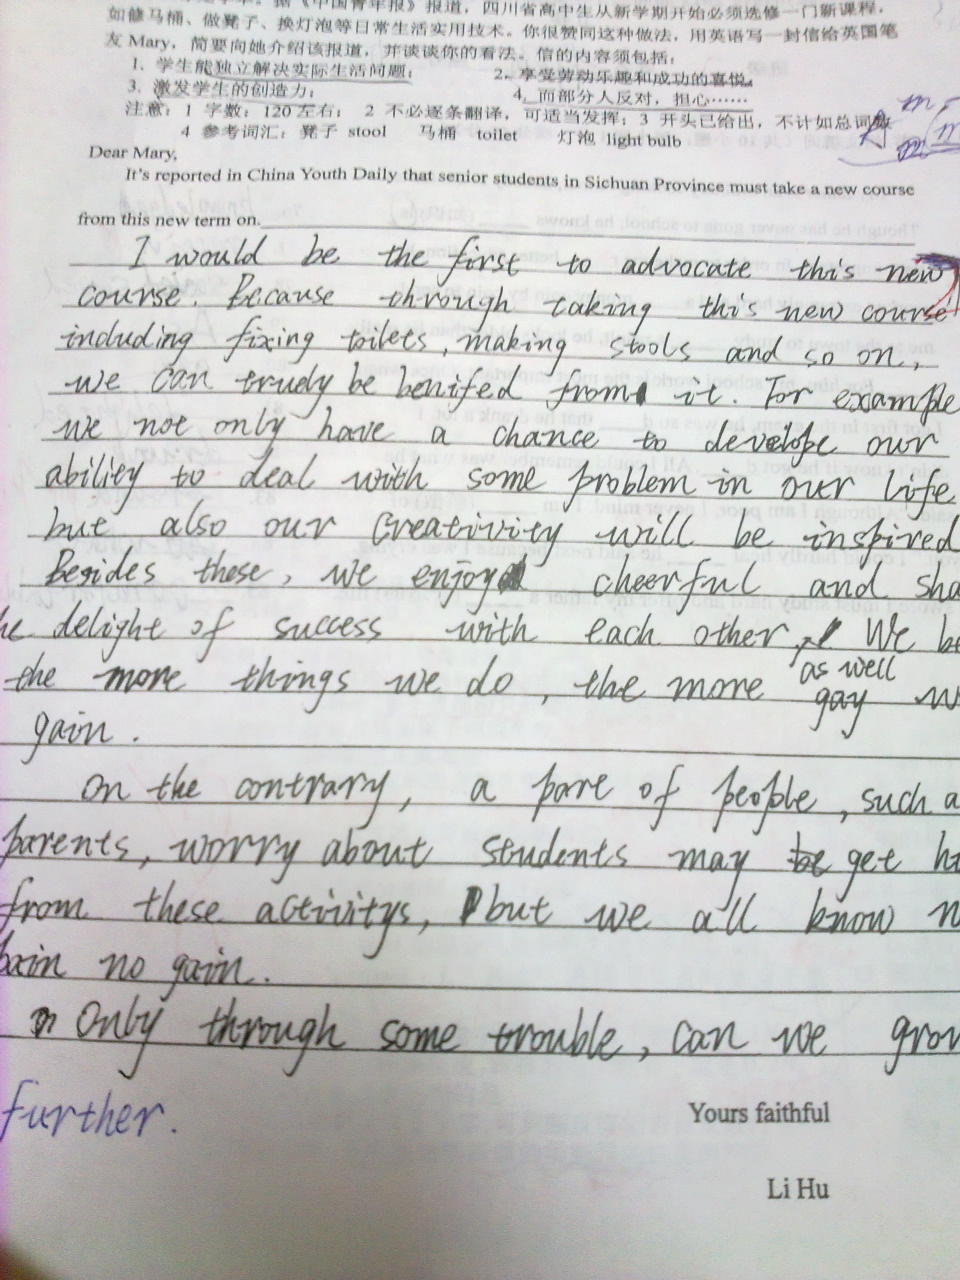 《中国青年报》报道，四川省高中生从新学期开始必须选修一门新课程，
如修马桶、做凳子、换灯泡等日常生活实用技术。你很赞同这种做法，用英语写一封信给英国笔
友 Mary，简要向她介绍该报道，并谈谈你的看法。信的内容须包括：
1、学生能独立解决实际生活问题； 2、享受劳动乐趣和成功的喜悦。
3、激发学生的创造力； 4、而部分人反对，担心……
注意：1 字数：120 左右； 2 不必逐条翻译，可适当发挥；3 开头已给出，不计如总词数
4 参考词汇：凳子 stool 马桶 toilet 灯泡 light bulb
Dear Mary,
It's reported in China Youth Daily that senior students in Sichuan Province must take a new course
from this new term on.
I would be the first to advocate this new
course. Because through taking this new course
including fixing toilets, making stools and so on,
we can truely be benifed from it. For example
we not only have a chance to develope our
ability to deal with some problem in our life
but also our creativity will be inspired
Besides these, we enjoy cheerful and sha
he delight of success with each other, We be
the more things we do, the more as well gay w
gain.
On the contrary, a part of people, such a
parents, worry about students may get hu
from these activitys, but we all know n
pain no gain.
Only through some trouble, can we grow
further.
Yours faithful
Li Hu